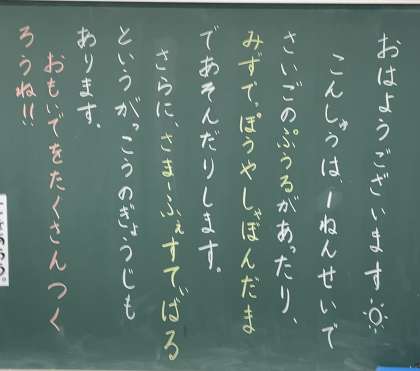 おはようございます
こんしゅうは、一ねんせいで
さいごのぷうるがあったり、
みずでっぽうやしゃぼんだま
であそんだりします。
さらに、さまーふぇすてぃばる
というがっこうのぎょうじも
あります。
おもいでをたくさんつく
ろうね!!